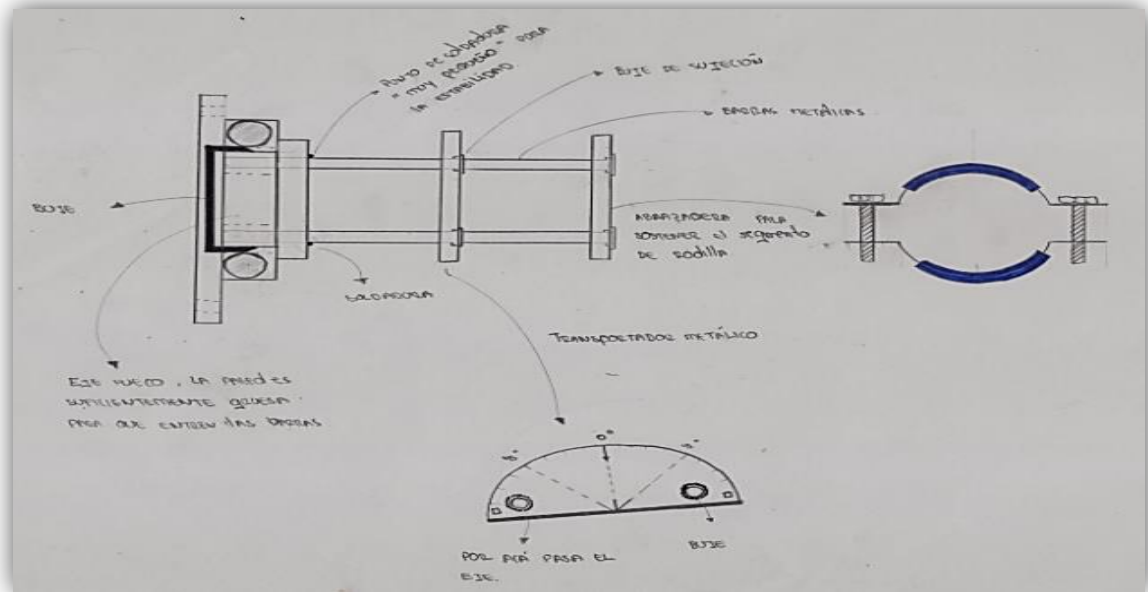 PUNTO DE SOLDADURA
"MUY PEQUEÑO" PARA
LA ESTABILIDAD.
BUJE DE SUJECIÓN
BARRAS METÁLICAS
BUJE
ABRAZADERA PARA
SOSTENER el segmento
DE RODILLA
SOLDADURA
TRANSPORTADOR METÁLICO
EJE HUECO, LA PARED ES
SUFICIENTEMENTE GRUESA
PARA QUE ENTREN LAS BARRAS
0°
POR ACÁ PASA EL
EJE.
BUJE